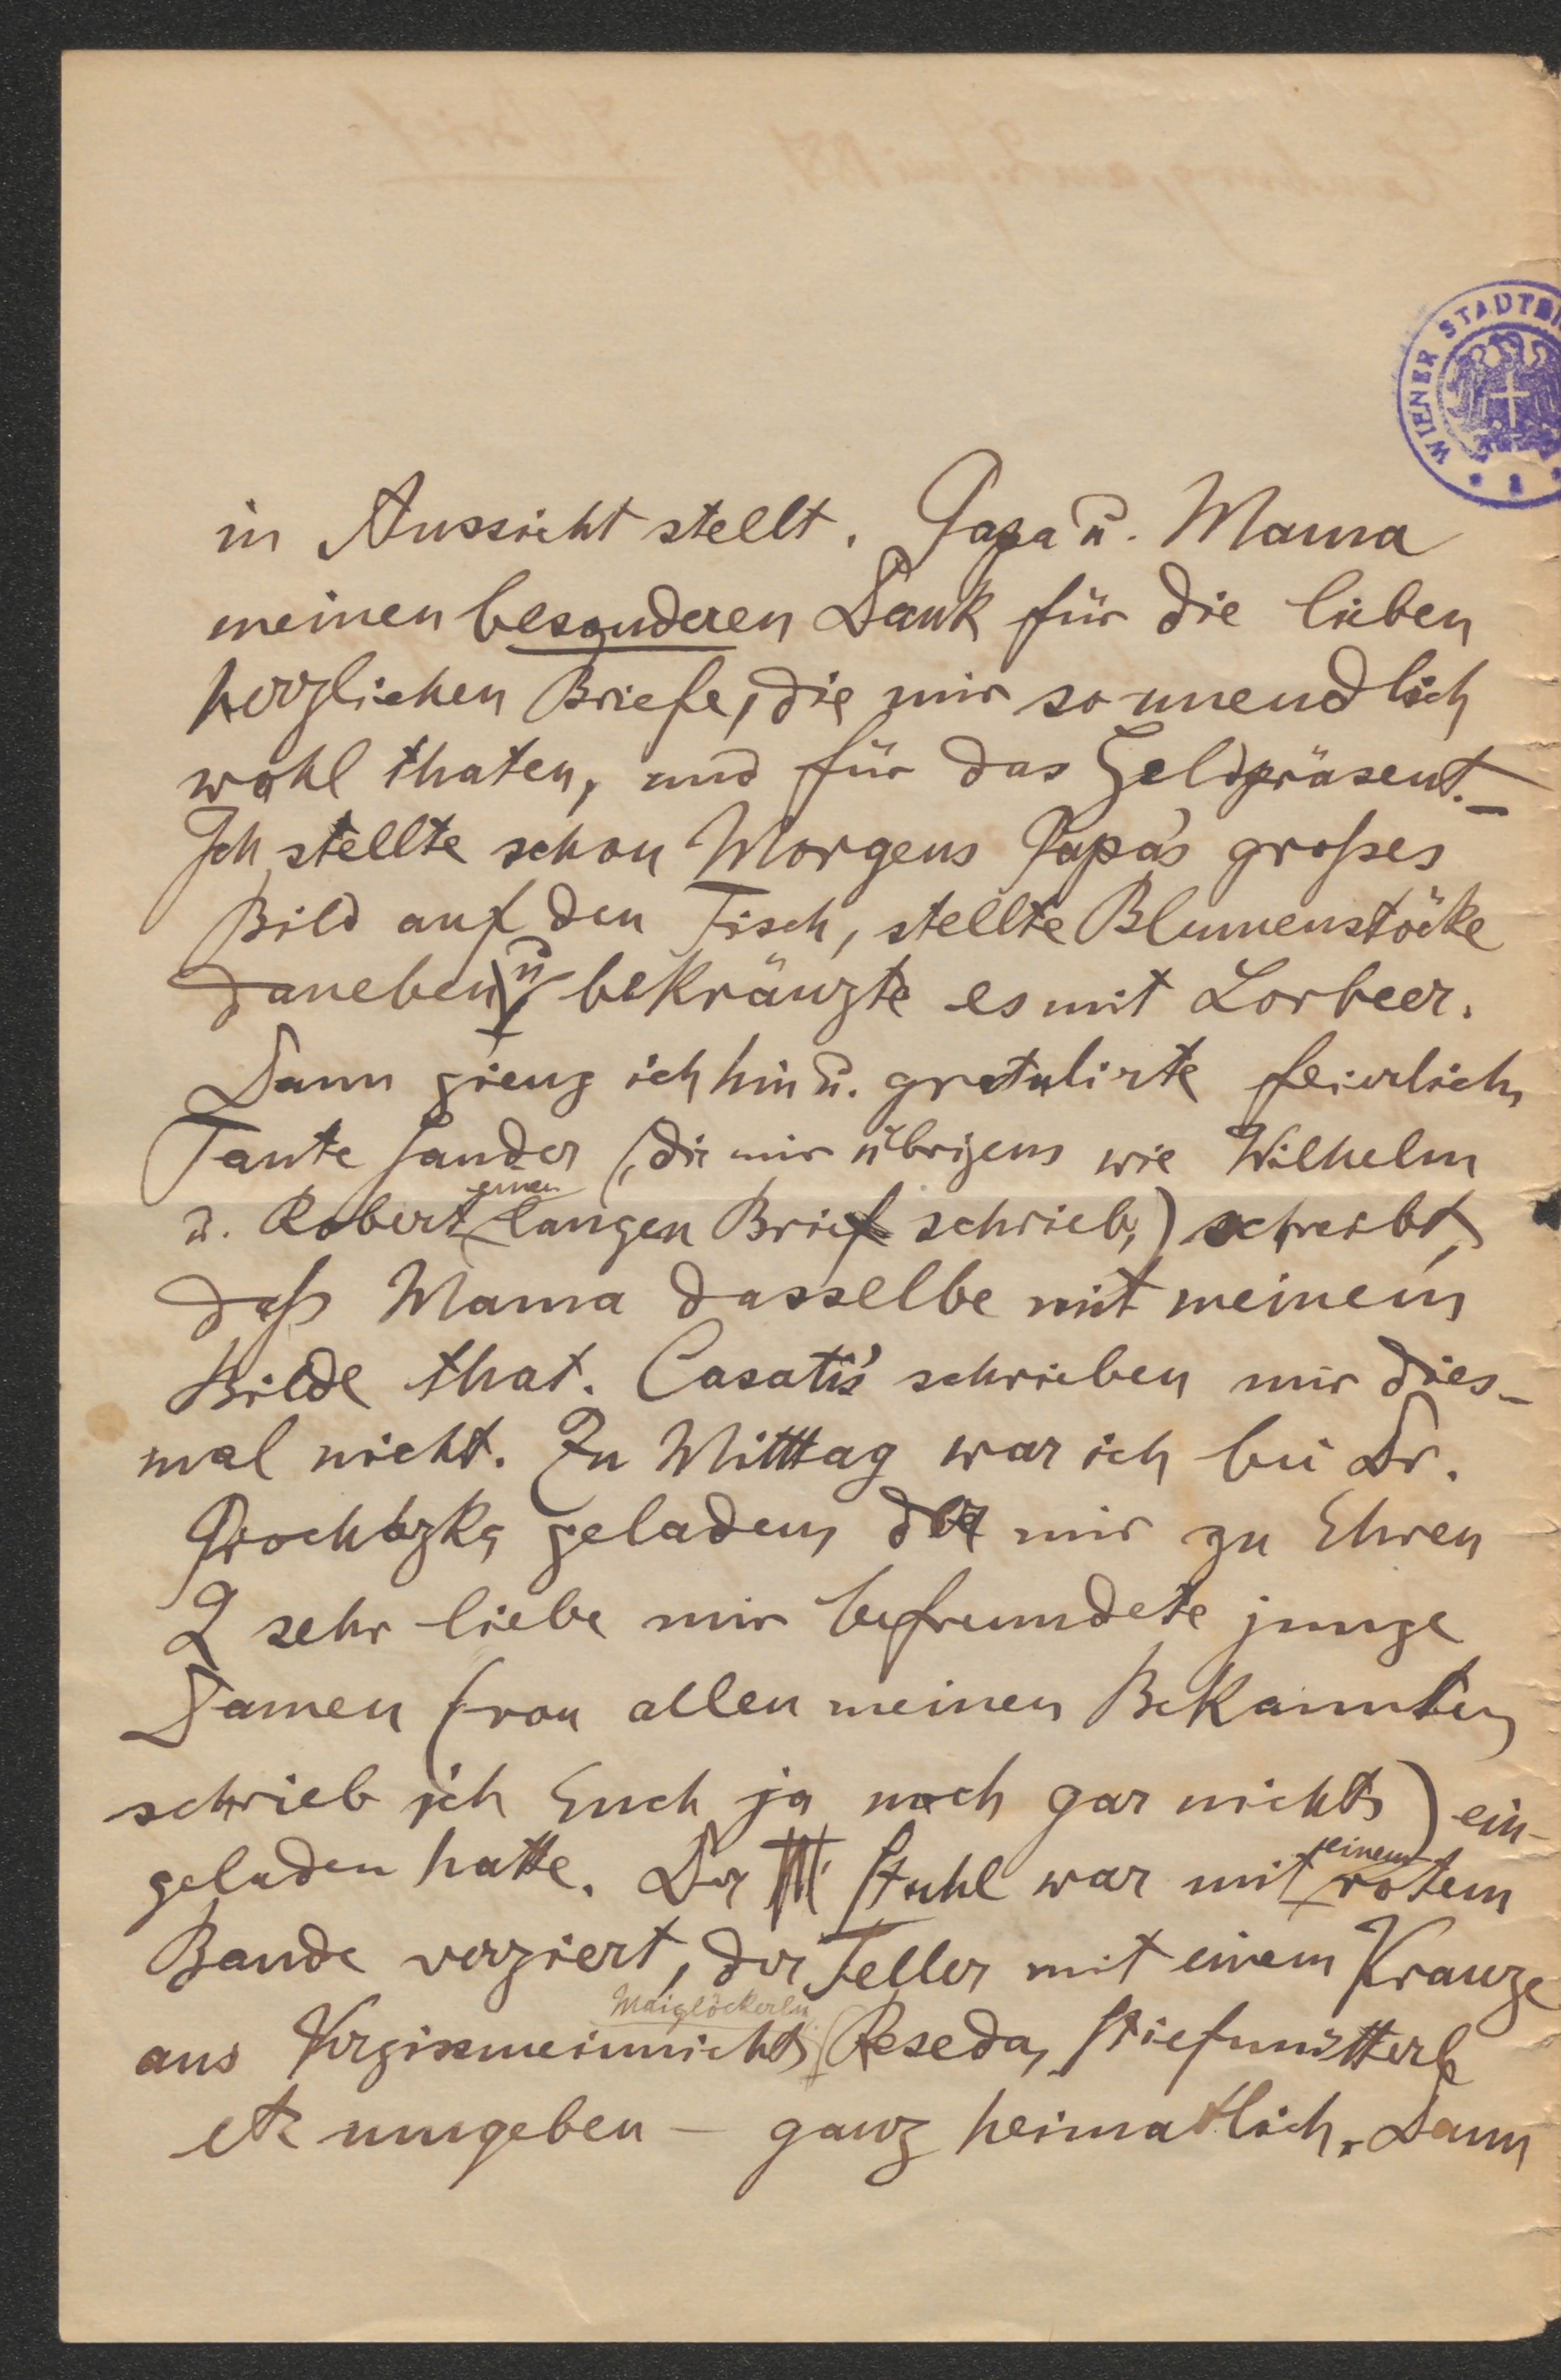 WIENER STADTBI
in Aussicht stellt. Papa u. Mama
meinen besonderen Dank für die lieben
herzlichen Briefe, die mir so unendlich
wohl thaten, und für das Geldpräsent.–
Ich stellte schon Morgens Papa's großes
Bild auf den Tisch, stellte Blumenstöcke
daneben u bekränzte es mit Lorbeer.
Dann gieng ich hin u. gratulirte feierlich,
Tante Sander (die mir übrigens wie Wilhelm
u. Robert einen langen Brief schrieb,) schreibt,
daß Mama dasselbe mit meinem
Bilde that. Casati's schrieben mir dies-
mal nicht. Zu Mitttag war ich bei Dr.
geladen, der mir zu Ehren
2 sehr liebe mir befreundete junge
Damen (von allen meinen Bekannten
schrieb ich Euch ja noch gar nichts) ein-
geladen hatte. Der Stuhl war mit einem rotem
Bande verziert, der Teller mit einem Kranze
aus Vergissmeinnicht, Maiglöckerln, Reseda, Stiefmütterl
etc umgeben – ganz heimatlich. Dann